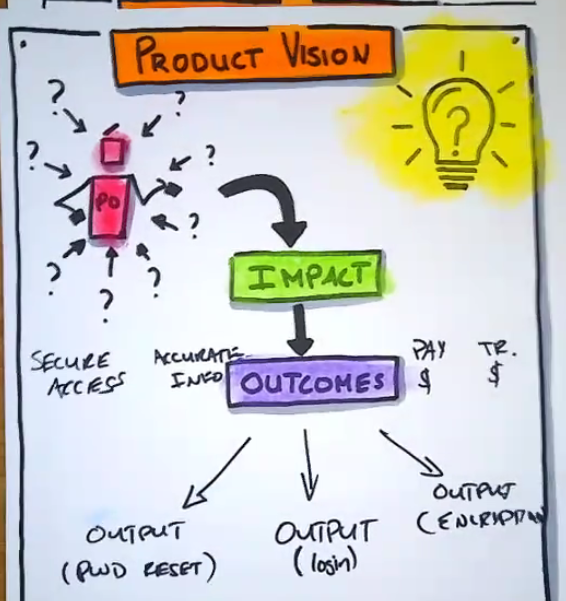 PRODUCT VISION
?
?
?
?
?
PO
?
?
?
?
IMPACT
SECURE
ACCESS
ACCURATE
INFO
OUTCOMES
PAY
$
TR.
$
OUTPUT
(PWD RESET)
OUTPUT
(login)
OUTPUT
(ENCRIPTION